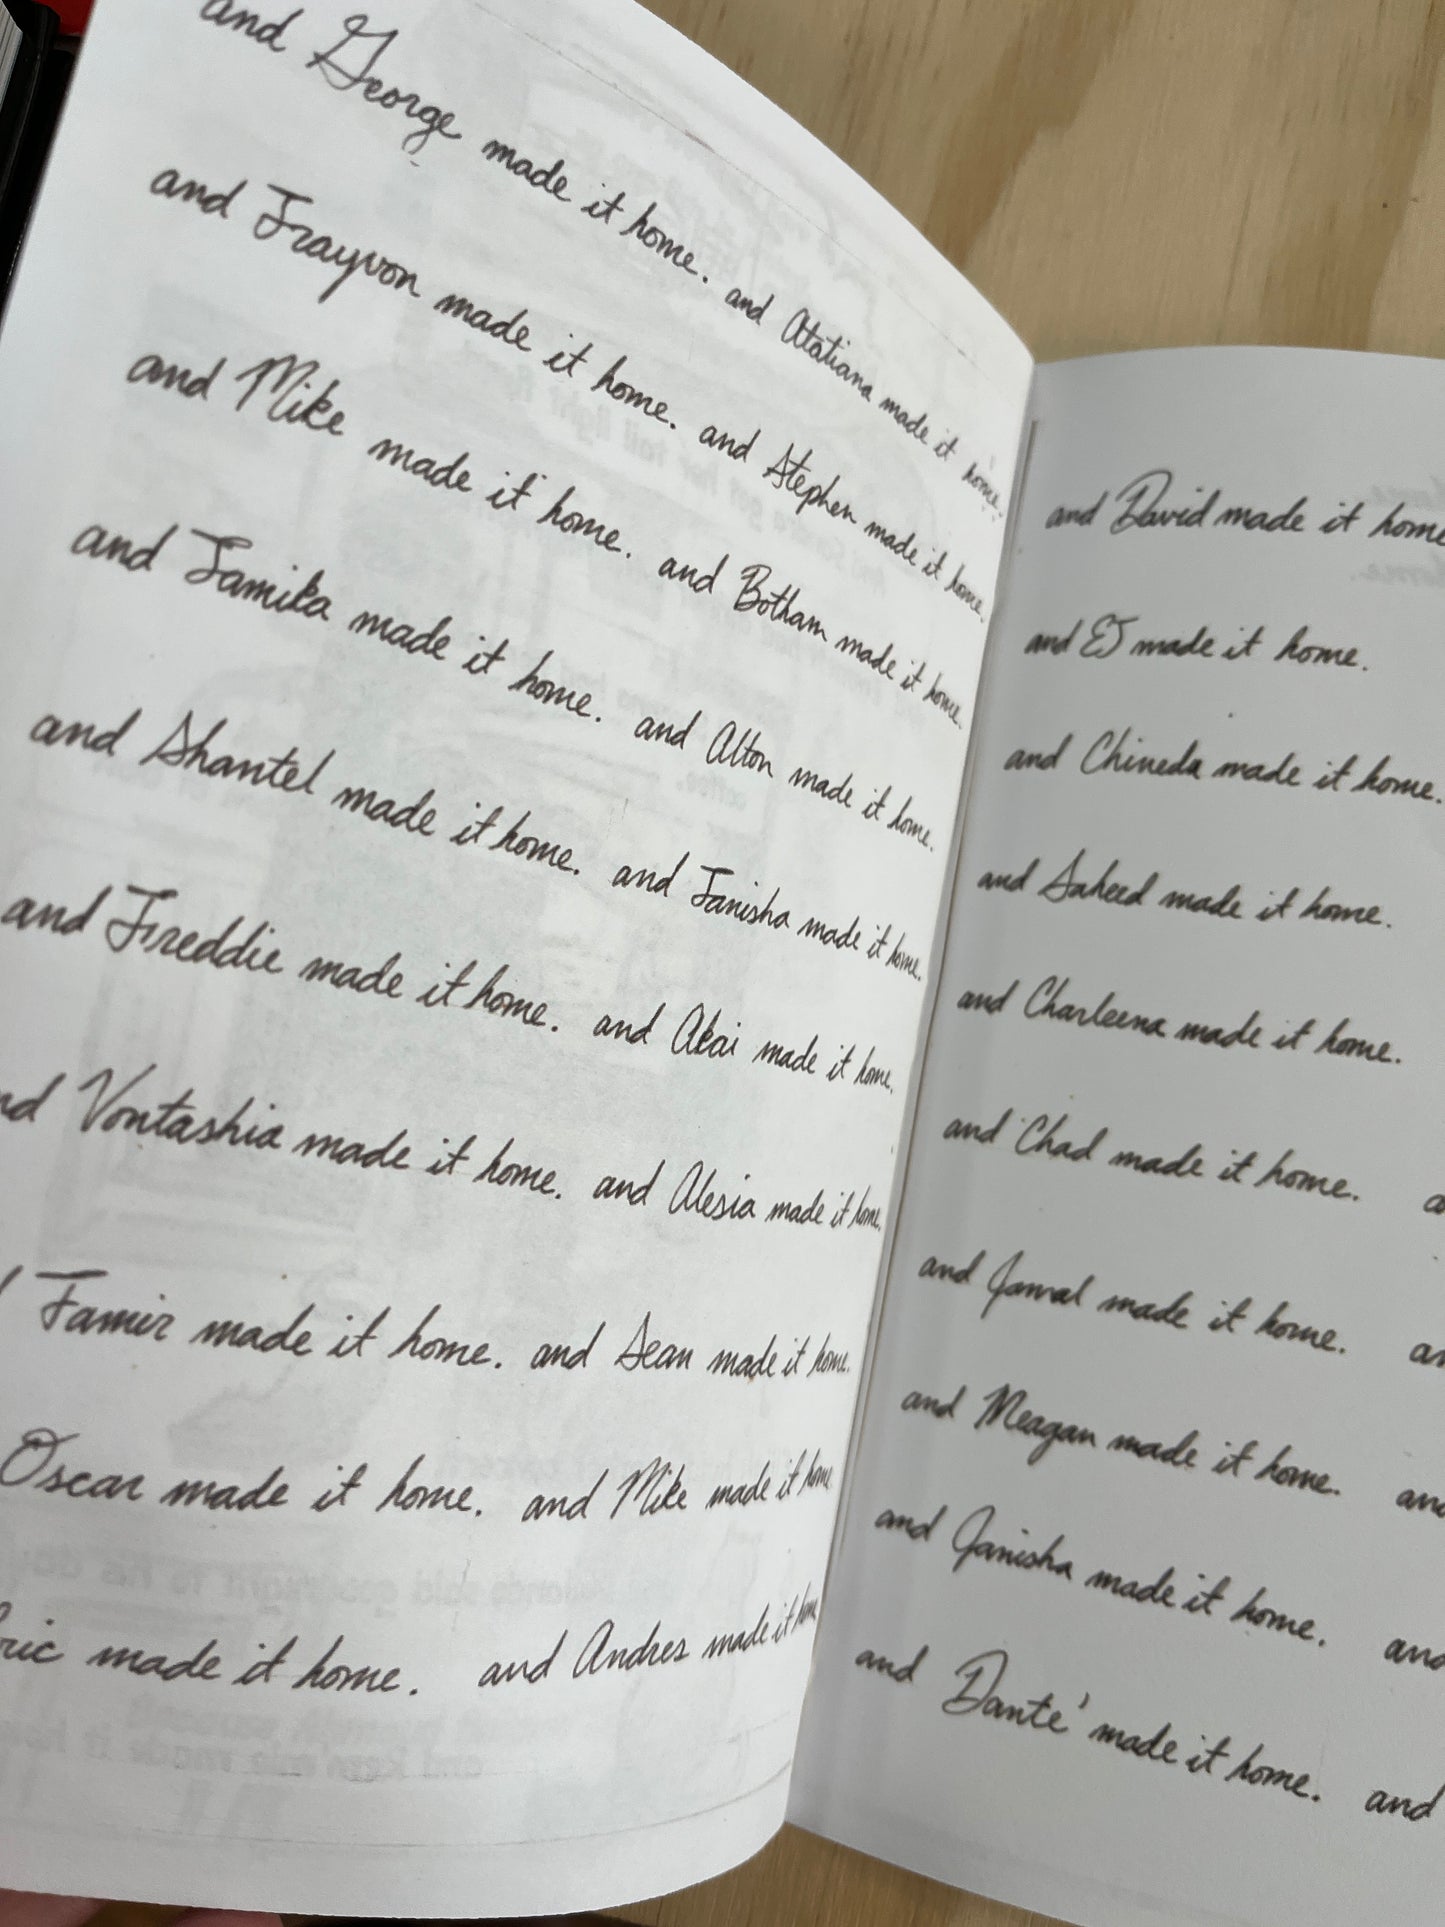 and George made it home. and Atatiana made it home.
and Trayvon made it home. and Stephen made it home.
and Mike made it home. and Botham made it home.
and Tamika made it home. and Alton made it home.
and Shantel made it home. and Tanisha made it home.
and Freddie made it home. and Akai made it home.
nd Vontashia made it home. and Alesia made it home.
d Tamir made it home. and Sean made it home.
Oscar made it home. and Mike made it home.
ric made it home. and Andres made it home
and David made it home
and EJ made it home.
and Chinedu made it home.
and Saheed made it home.
and Charleena made it home.
and Chad made it home. a
and Jamal made it home. an
and Meagan made it home. and
and Janisha made it home. and
and Danté made it home. and